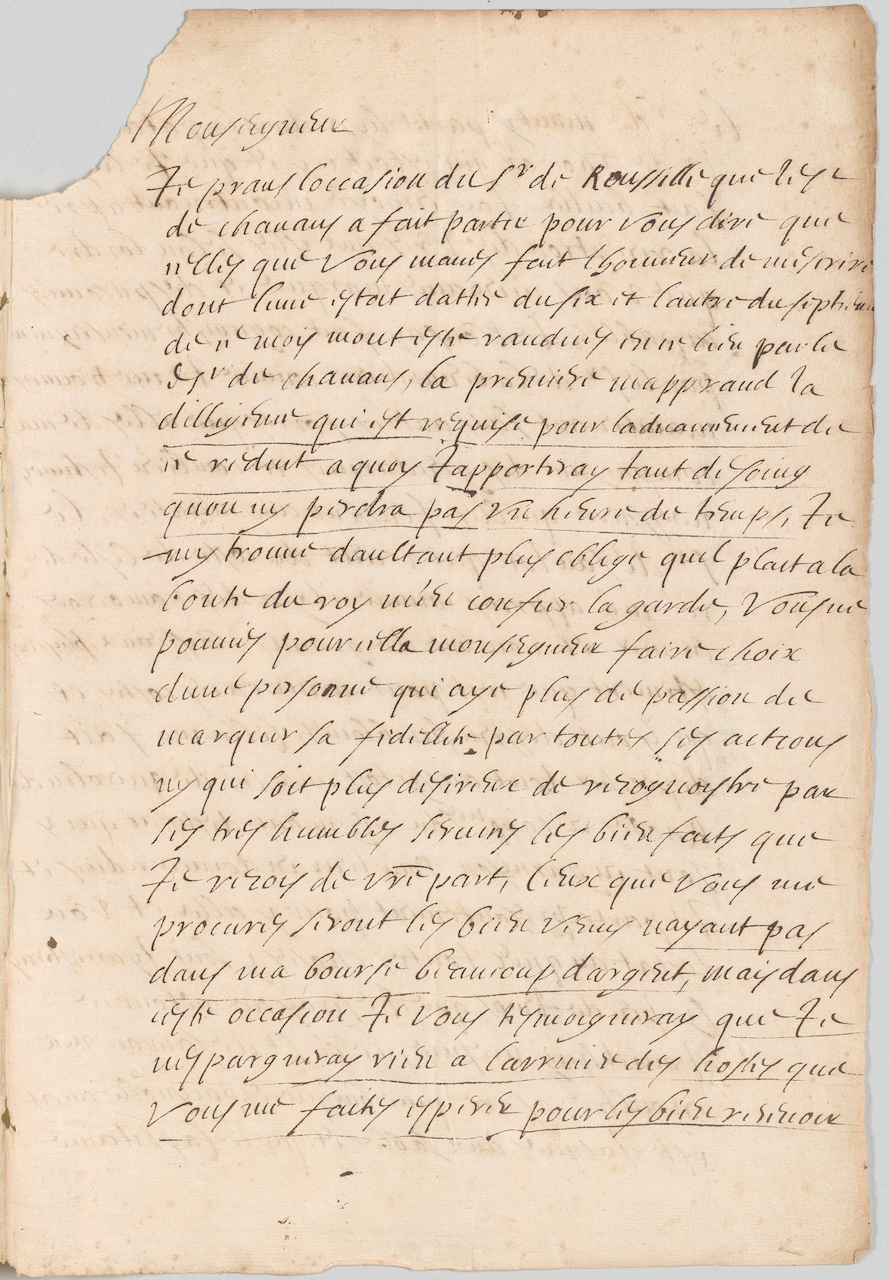 Monseigneur
Je prans loccasion du Sr de Roussille que le Sr
de chavans a fait partir pour vous dire que
celles que vous maves fait lhonneur de mescrire
dont lune estoit dattee du six et lautre du septieme
de ce mois mont este randues en ce lieu par le
Sr de chavans, la premiere mapprand la
dilligence qui est requise pour ladvancement de
ce reduit a quoy Japporteray tant de soing
quon ny perdra pas une heure de temps, Je
my trouve daultant plus oblige quil plait a la
bonte du roy men confier la garde, Vous ne
pouvies pour cella monseigneur faire choix
dune personne qui aye plus de passion de
marquer sa fidellite par toutes ses actions
ny qui soit plus desireux de recognoystre par
ses tres humbles services les bien faits que
Je recois de vre part, Ceux que vous me
procures seront les bien venus nayant pas
dans ma bourse beaucoup dargent, mais dans
ceste occasion Je vous tesmoigneray que Je
nespargneray rien a larrivee des hostes que
Vous me faites esperer pour les bien recevoir